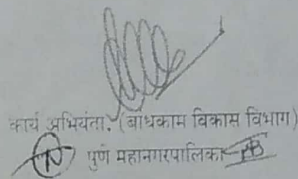 कार्य अभियंता. (बांधकाम विकास विभाग)
पुणे महानगरपालिका